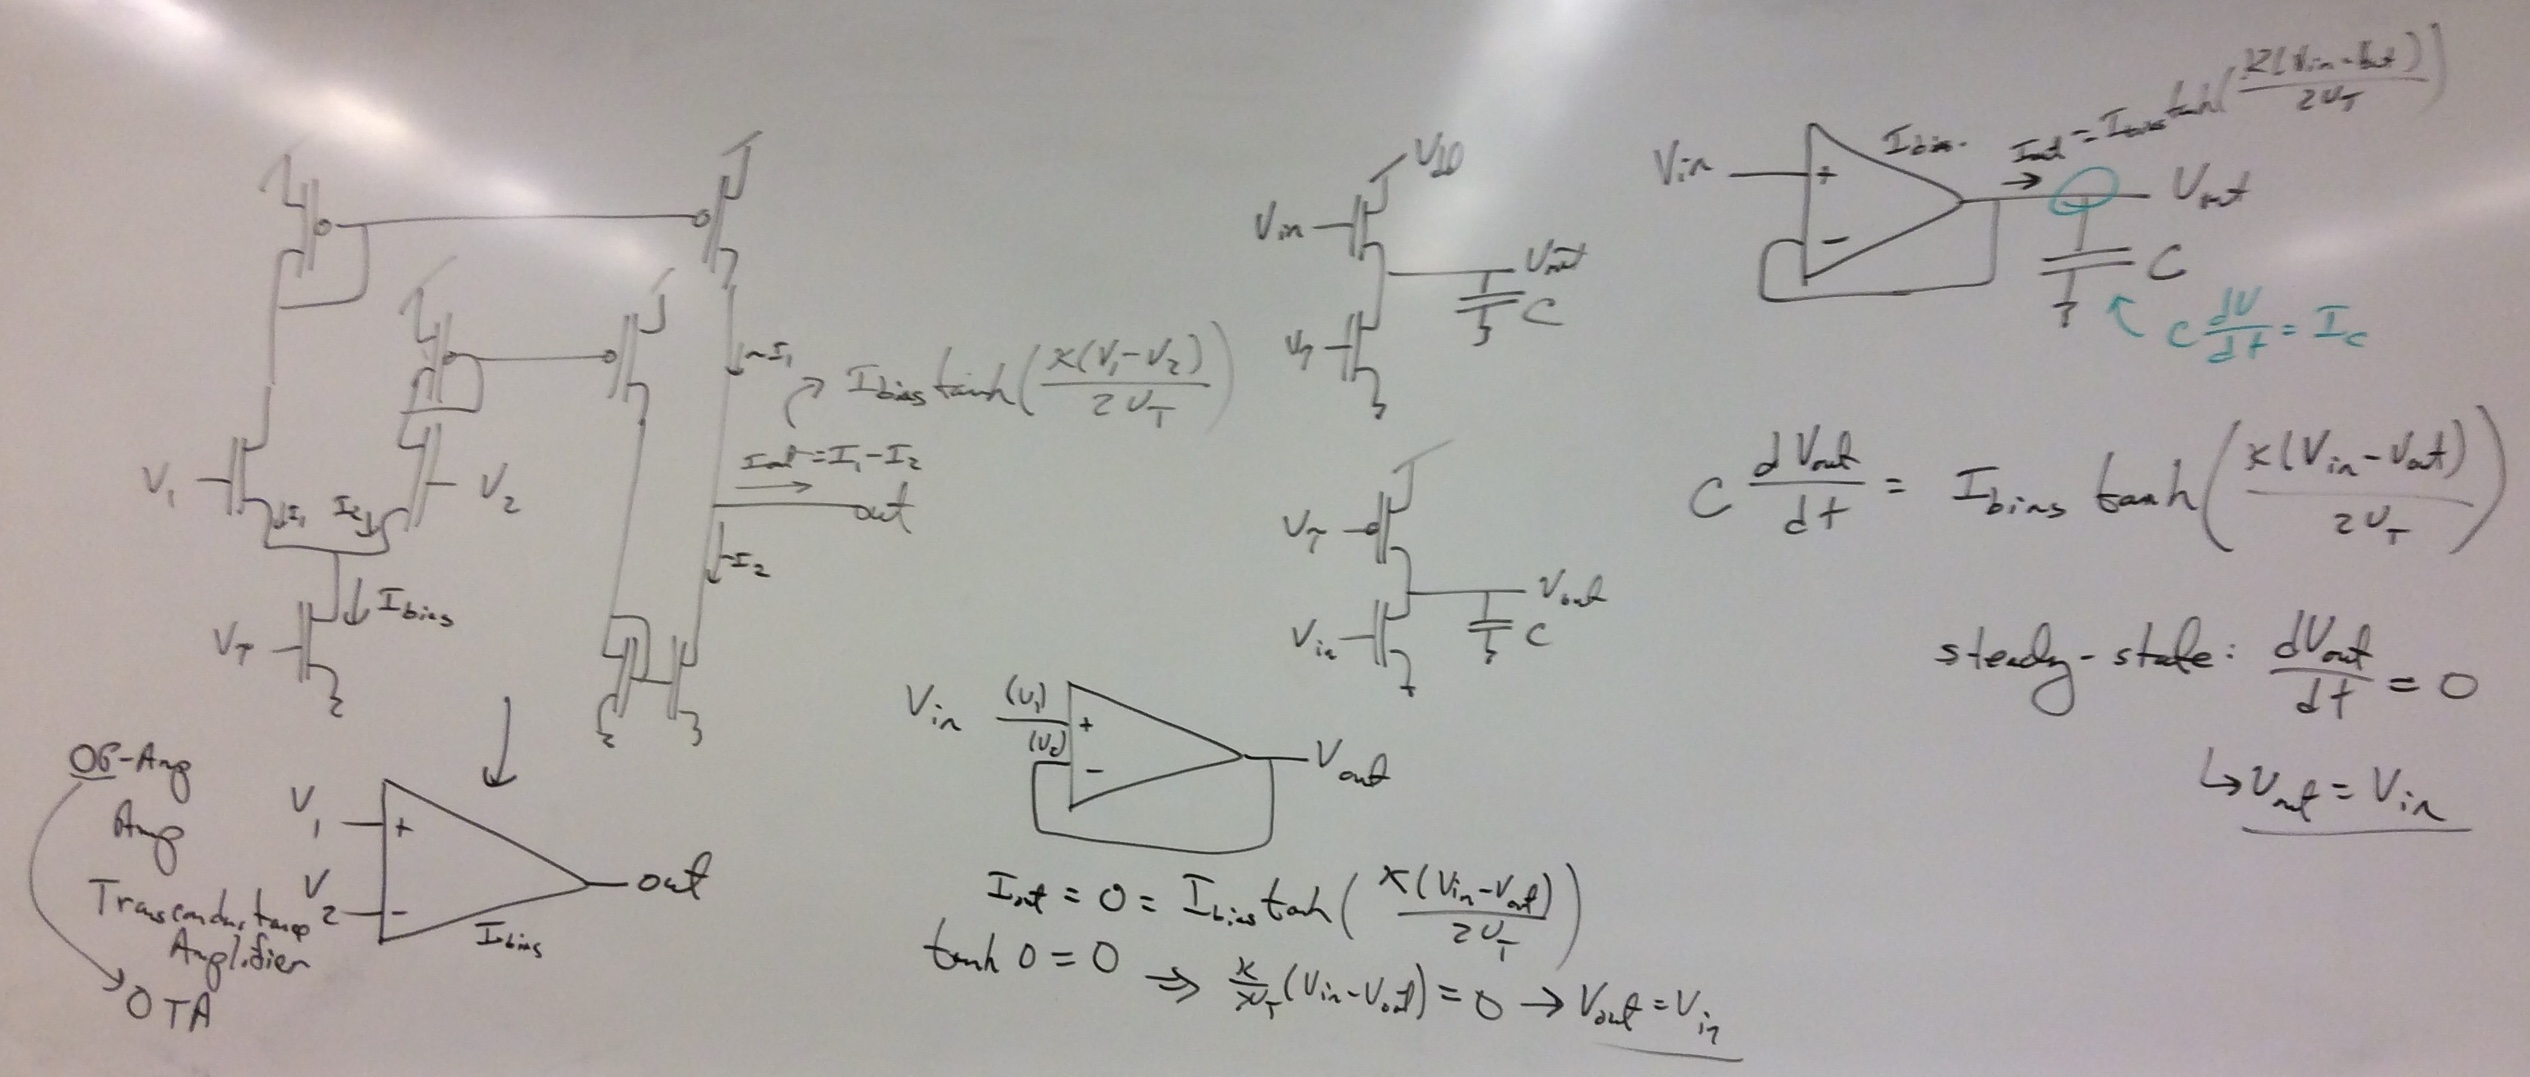 ~I₁
I_bias tanh(κ(V₁-V₂)/2U_T)
I_out = I₁-I₂
out
~I₂
V₁
V₂
I₁
I₂
I_bias
V_τ
OP-Amp
Amp
Transconductance
Amplifier
OTA
V₁
+
V₂
-
out
I_bias
V_in
V_out
C
V_τ
V_τ
V_out
V_in
C
V_in
(V₁)
(V₂)
+
-
V_out
I_out = 0 = I_bias tanh(κ(V_in-V_out)/2U_T)
tanh 0 = 0
⇒ κ/2U_T (V_in-V_out) = 0 → V_out = V_in
V_in
+
-
I_bias
I_out = I_bias tanh(κ(V_in-V_out)/2U_T)
→
V_out
C
C dV/dt = I_c
C dV_out/dt = I_bias tanh(κ(V_in-V_out)/2U_T)
steady-state: dV_out/dt = 0
↳ V_out = V_in